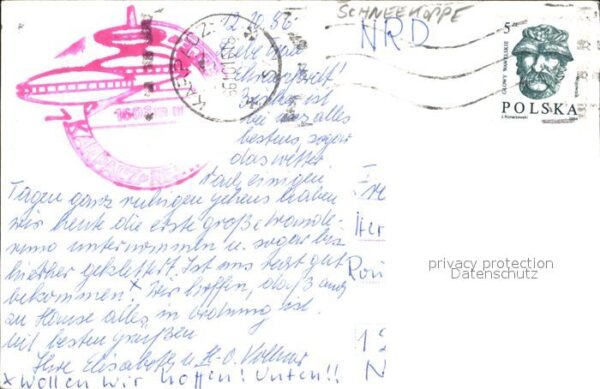 12.10.86
SCHNEEKOPPE
NRD
5 zł
GŁOWY WAWELSKIE
POLSKA
KARPACZ
Liebe
ist
bei uns alles
bestens, sogar
das Wetter.
Nach einigen
Tagen ganz ruhigen gehens haben
wir heute die erste große Wande-
rung unternommen u. sogar bis
hierher geklettert. Ist uns recht gut
bekommen.x Wir hoffen, daß auch
zu Hause alles in Ordnung ist.
Mit besten Grüßen
Ihre Elisabeth u. H.-O.
x Wollen wir hoffen! Unten!!
privacy protection
Datenschutz